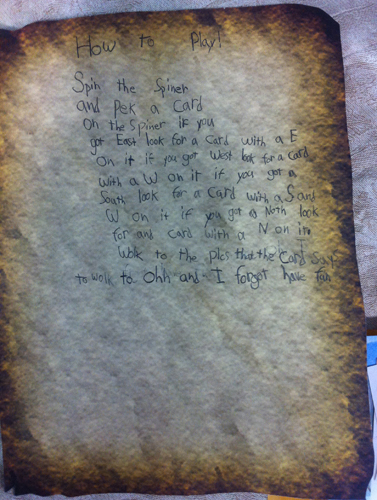 How to Play!
Spin the Spiner
and Pek a Card
on the Spiner if you
got East look for a card with a E
on it if you got West look for a card
with a W on it if you got a
South look for a card with a S and
W on it if you got a Noth look
for and card with a N on it
Wolk to the plas that the card say
to wolk to Ohh and I forgot have fun